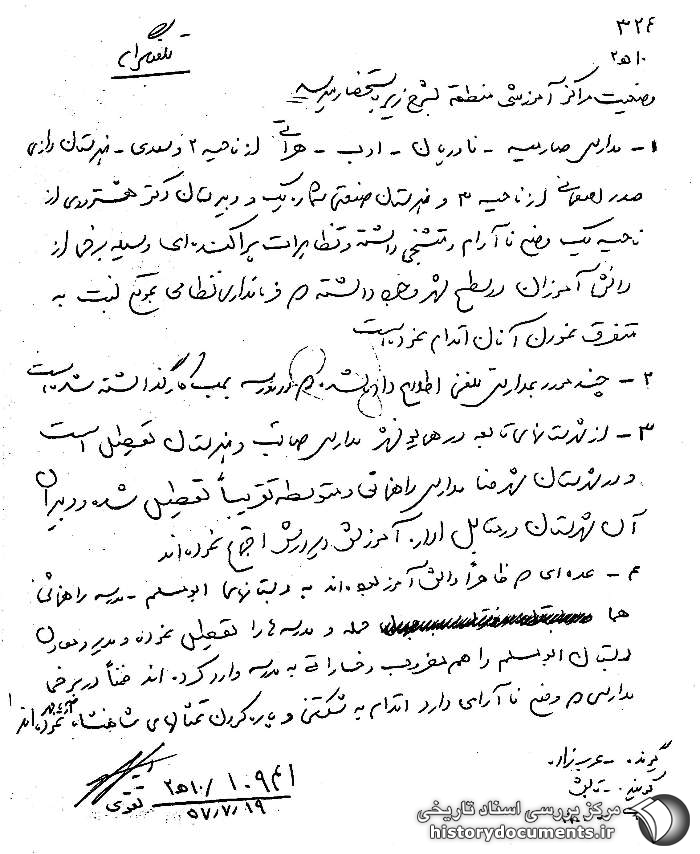 ۳۲۴
۱۰ ه‍ ۲
تلفنگرام
وضعیت مراکز آموزشی منطقه بشرح زیر باستحضار میرسد
۱- مدارس صارمیه - نادریان - ادب - هراتی از ناحیه ۲ و سعدی - هنرستان رازی
صدر اصفهانی از ناحیه ۳ و هنرستان صنعتی شماره یک و دبیرستان دکتر هشترودی از
ناحیه یک وضع ناآرام و متشنجی داشته و تظاهرات پراکنده‌ای وسیله برخی از
دانش آموزان در سطح شهر وجود داشته که فرمانداری نظامی بموقع نسبت به
متفرق نمودن آنان اقدام نموده است
۲- چند مورد بمدارس تلفنی اطلاع داده شده که در مدرسه بمب کار گذاشته شده است
۳- از شهرستانهای تابعه در همایونشهر مدارس صائب و هنرستان تعطیل است
و در شهرستان شهرضا مدارس راهنمائی و متوسطه تقریباً تعطیل شده و دبیران
آن شهرستان در مقابل اداره آموزش و پرورش اجتماع نموده‌اند
۴- عده‌ای که ظاهراً دانش آموز نبوده‌اند به دبستانهای ابومسلم - مدرسه راهنمائی
هما حمله و مدرسه ها را تعطیل نموده و مدیر و معاون
دبستان ابومسلم را هم مضروب و خساراتی به مدرسه وارد کرده اند ضمناً در برخی
مدارس که وضع ناآرامی دارد اقدام به شکستن و پاره کردن تمثالهای شاهنشاه آریامهر نموده‌اند
گوینده - عرب زاده
گیرنده - تابش
۱۰۹۴۱ / ۱۰ ه‍ ۲
۵۷/۷/۱۹
تقوی
مرکز بررسی اسناد تاریخی
historydocuments.ir